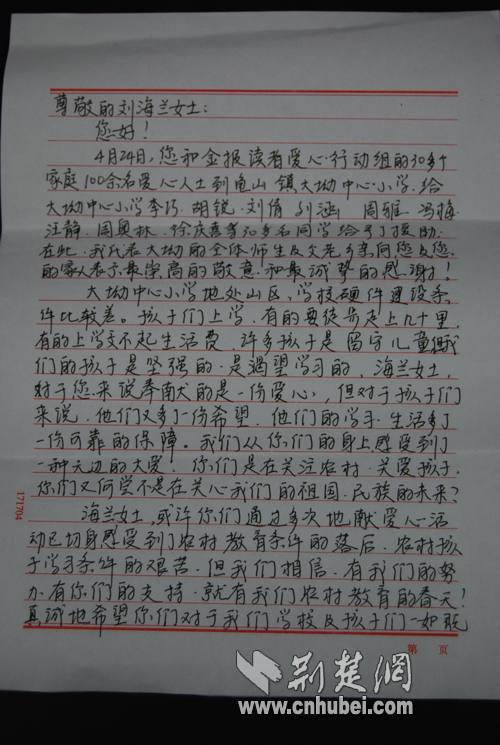 尊敬的刘海兰女士：
您好！
4月24日，您和金报读者爱心行动组的30多个
家庭100余名爱心人士到龟山镇大坳中心小学，给
大坳中心小学李巧、胡锐、刘倩、刘涵、周雅、冯梅、
汪静、周奥林、徐庆喜等30多名同学给予了援助。
在此，我代表大坳的全体师生及父老乡亲向您及您
的家人表示最崇高的敬意和最诚挚的感谢！
大坳中心小学地处山区，学校硬件建设条
件比较差。孩子们上学，有的要徒步走上几十里，
有的上学交不起生活费，许多孩子是留守儿童，但我
们的孩子是坚强的，是渴望学习的，海兰女士，
对于您来说奉献的是一份爱心，但对于孩子们
来说，他们又多了一份希望，他们的学习、生活多了
一份可靠的保障。我们从你们的身上感受到了
一种无边的大爱！你们是在关注农村、关爱孩子，
你们又何尝不是在关心我们的祖国、民族的未来？
海兰女士，或许你们通过多次地献爱心活
动已切身感受到了农村教育条件的落后，农村孩
子学习条件的艰苦，但我们相信，有我们的努
力，有你们的支持，就有我们农村教育的春天！
真诚地希望你们对于我们学校及孩子们一如既
171704
第 页
荆楚网
www.cnhubei.com